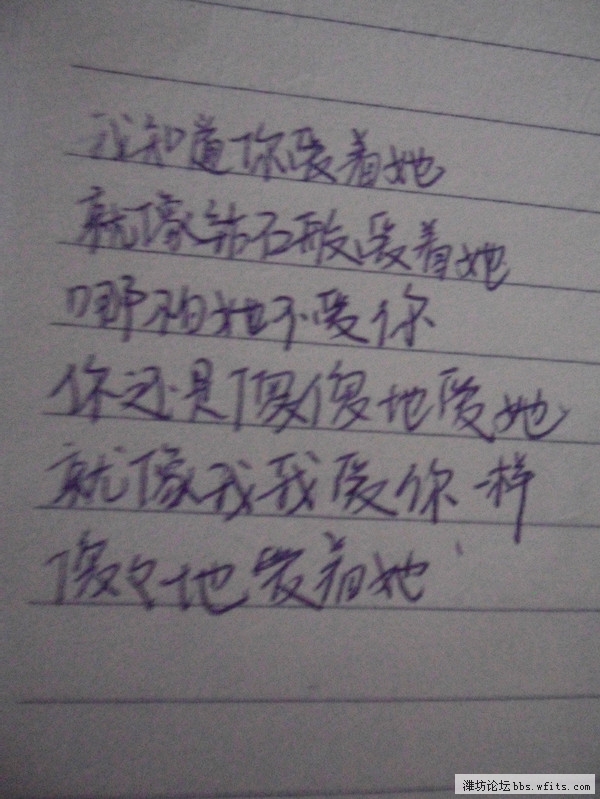 我知道你爱着她
就像钻石般爱着她
哪怕她不爱你
你还是傻傻地爱她
就像我我爱你一样
傻々地爱着她
潍坊论坛bbs.wfits.com